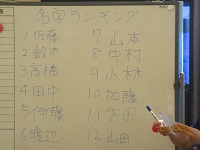 名字ランキング
1 佐藤
2 鈴木
3 高橋
4 田中
5 伊藤
6 渡辺
7 山本
8 中村
9 小林
10 加藤
11 吉田
12 山田